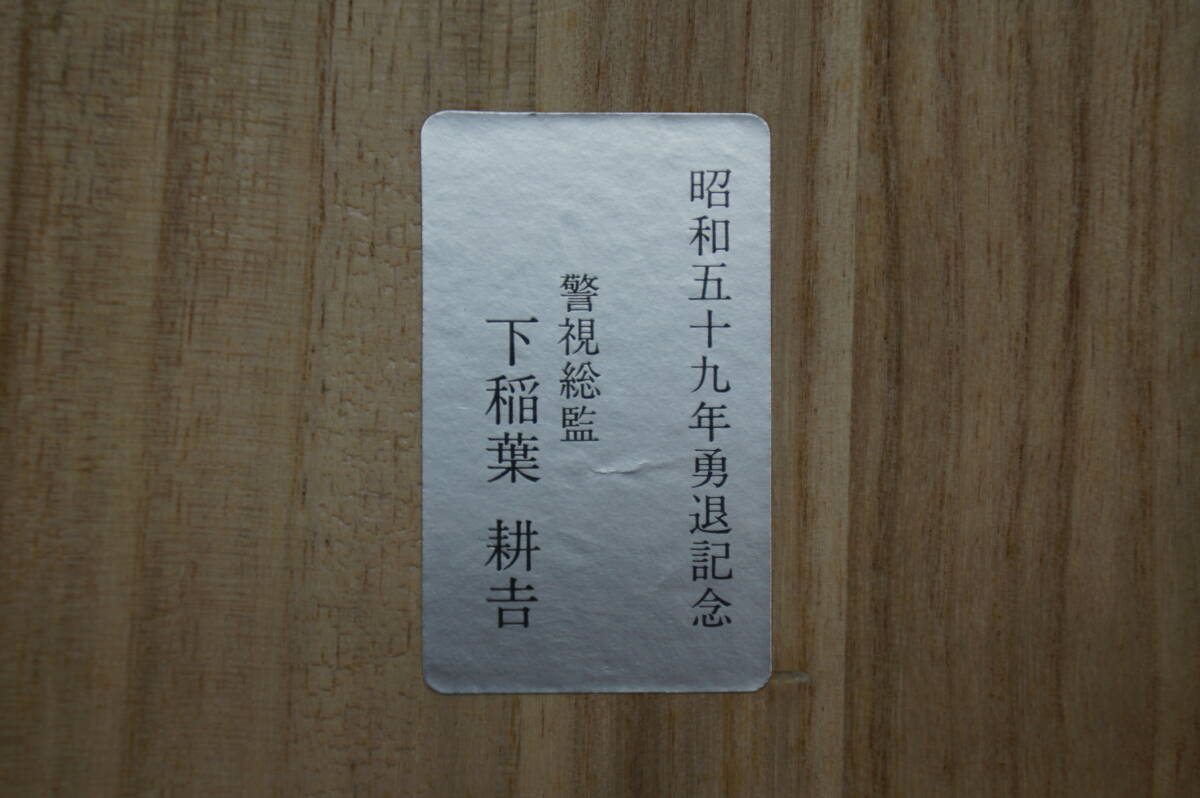 昭和五十九年勇退記念
警視総監
下稲葉 耕𠮷